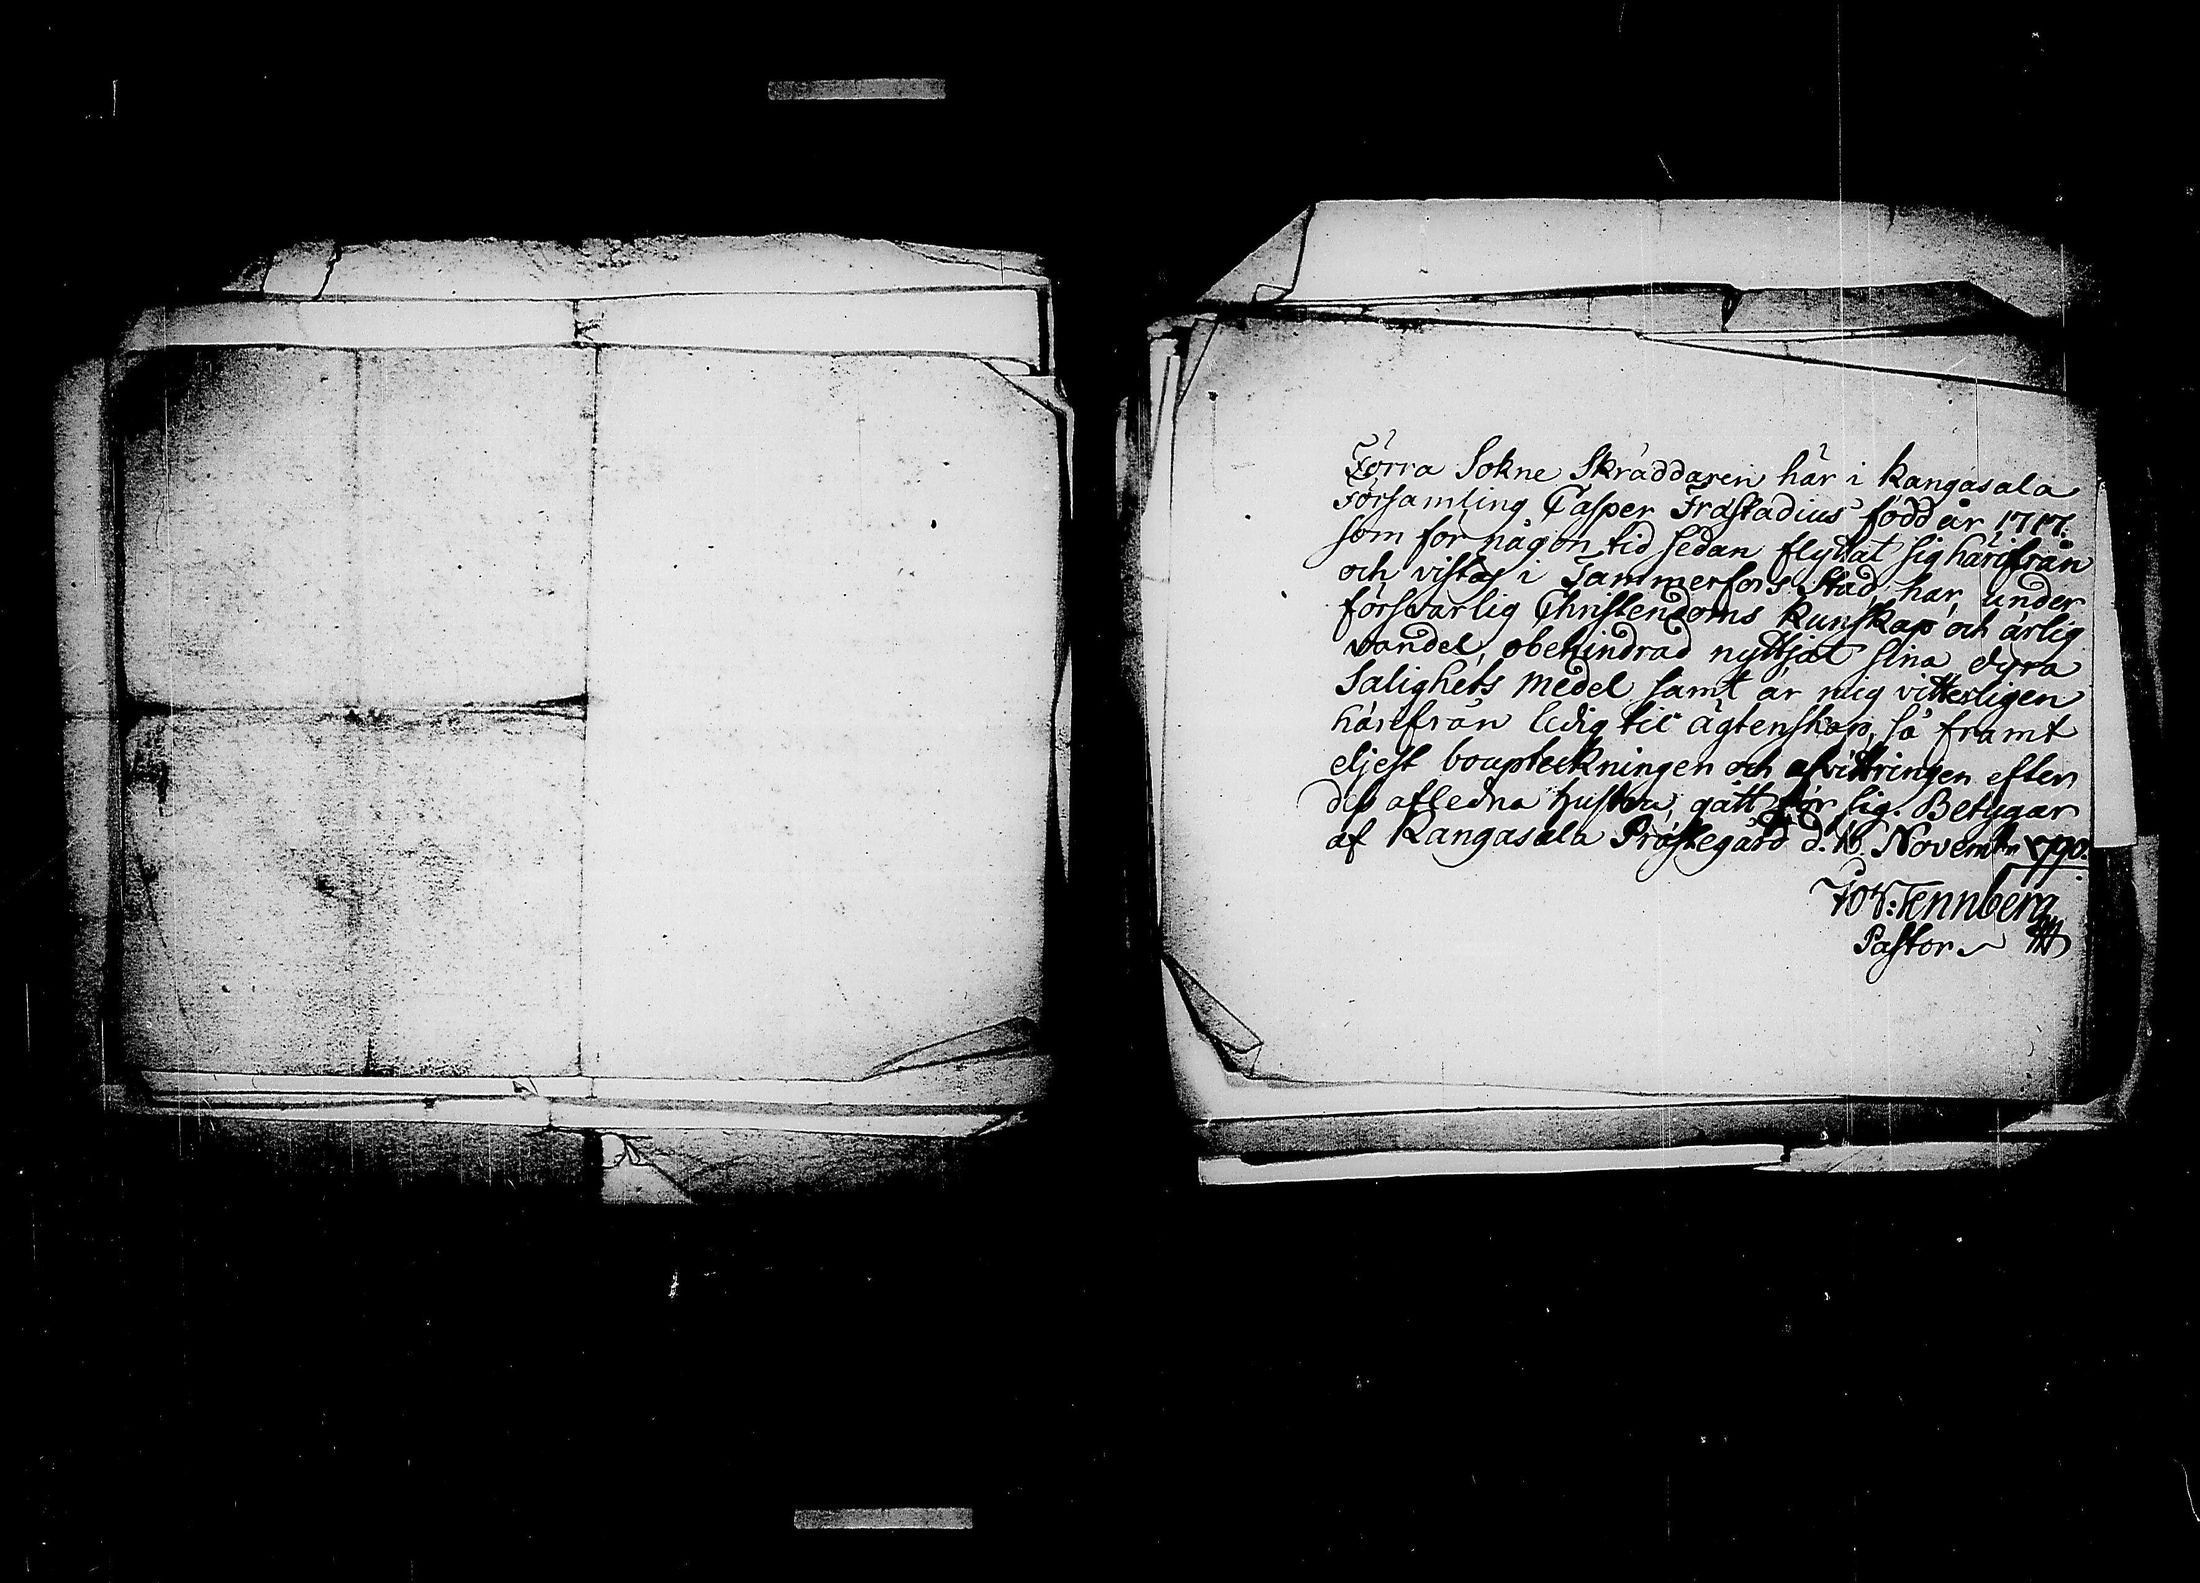 Förra Sokne Skräddaren här i Kangasala
Församling Casper Frastadius född år 1717.
som för någon tid sedan flyttat sig härifrån
och vistas i Tammerfors Stad, har under
försvarlig Christendoms kunskap och ärlig
vandel, obehindrad nyttjat sina dyra
Salighets medel samt är mig vitterligen
härifrån ledig til ägtenskap, så framt
eljest bouptekningen och afvittringen efter
dess afledna hustru, gått för sig. Betygar
af Kangasala Prästegård d. 16 Novembr 1790.
Tennberg
Pastor